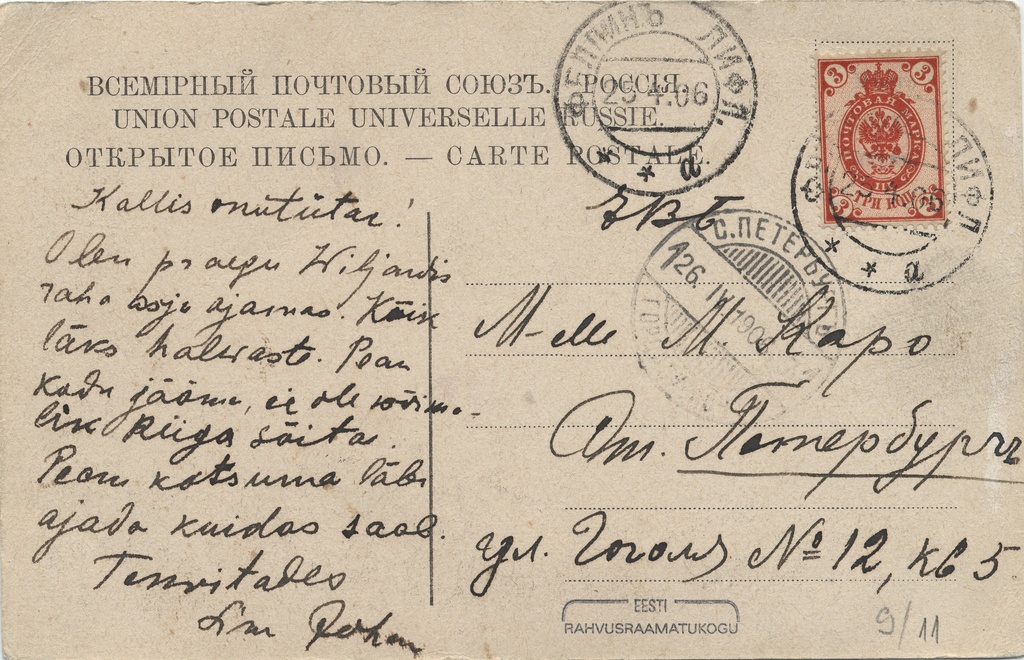 ВСЕМІРНЫЙ ПОЧТОВЫЙ СОЮЗЪ. РОССІЯ.
UNION POSTALE UNIVERSELLE RUSSIE.
ОТКРЫТОЕ ПИСЬМО. — CARTE POSTALE.
ФЕЛЛИНЪ ЛИФЛ.
25.4.06
а
3 3
ПОЧТОВАЯ МАРКА
ТРИ КОП
3 3
ЛИФЛ
а
С.ПЕТЕРБУ
1 26. IV 190
Kallis
Olen praegu Wiljandis
raha asju ajamas. Kõik
läks halwaste. Pean
kodu jääma, ei ole wõima-
lik Riiga sõita.
Pean katsuma läbi
ajada kuidas saab.
Terwitades
M-elle М. Каро
От. Петербургъ
ул. Гоголя № 12, кв 5
EESTI
RAHVUSRAAMATUKOGU
9/11